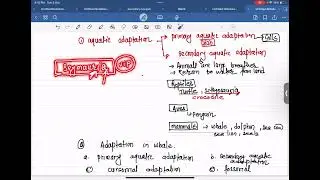 ① aquatic adaptation → primary aquatic adaptation
→ secondary aquatic adaptation
→ Animals are lung breathers
→ Return to water from land
Reptiles
Turtle,
crocodile
Aves
→ Penguin
mammals → whale, dolphin, sea cow
sea lion, seals
② Adaptation in whale
a. primary aquatic adaptation
b. secondary aquatic adaptation
c. cursorial adaptation
d. fossorial